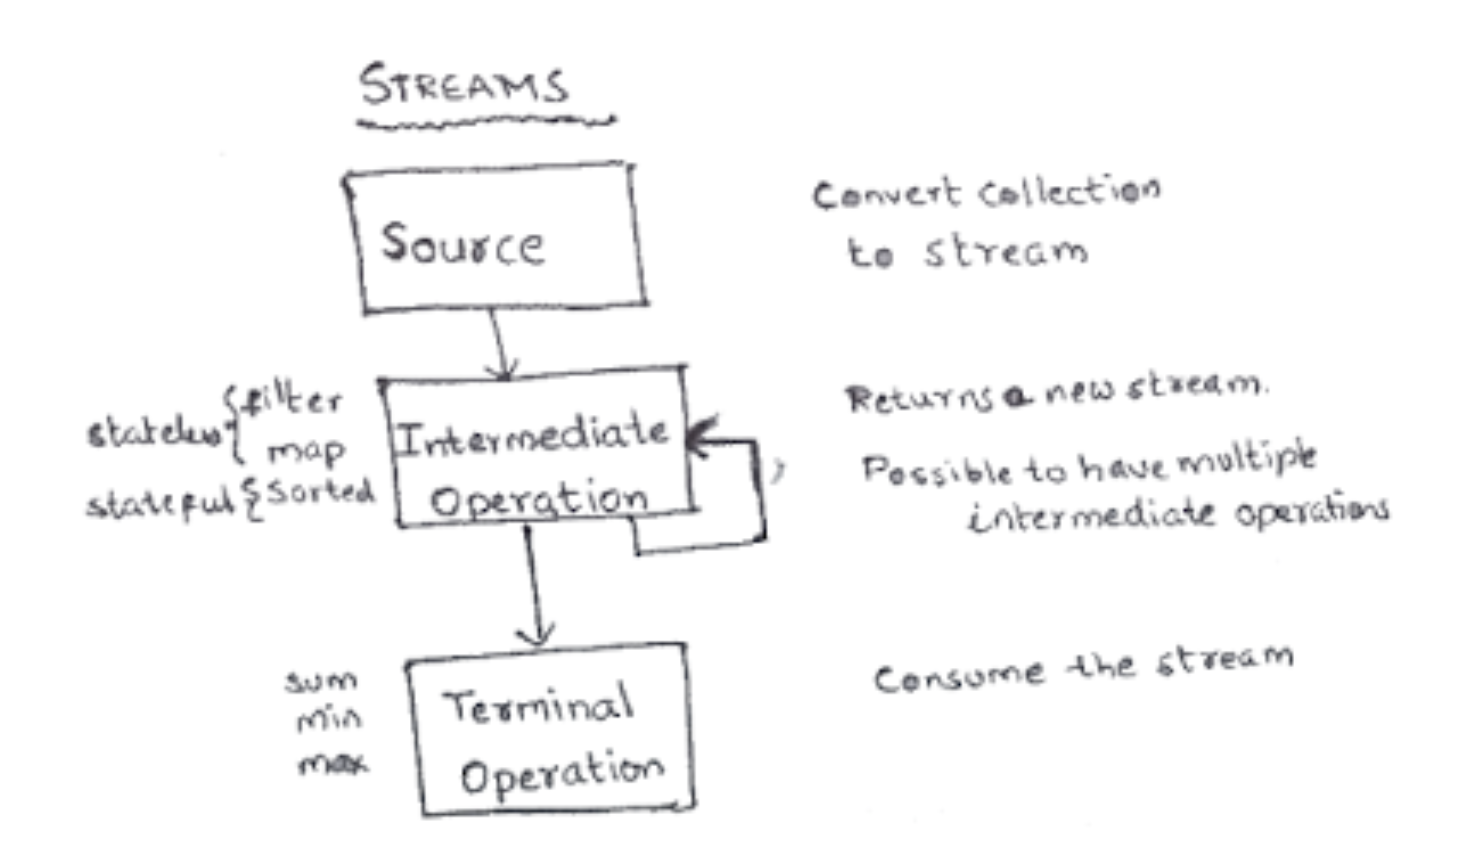 STREAMS
Source
Convert collection
to stream
stateless { filter
map
stateful { sorted
Intermediate
Operation
Returns a new stream.
Possible to have multiple
intermediate operations
sum
min
max
Terminal
Operation
Consume the stream